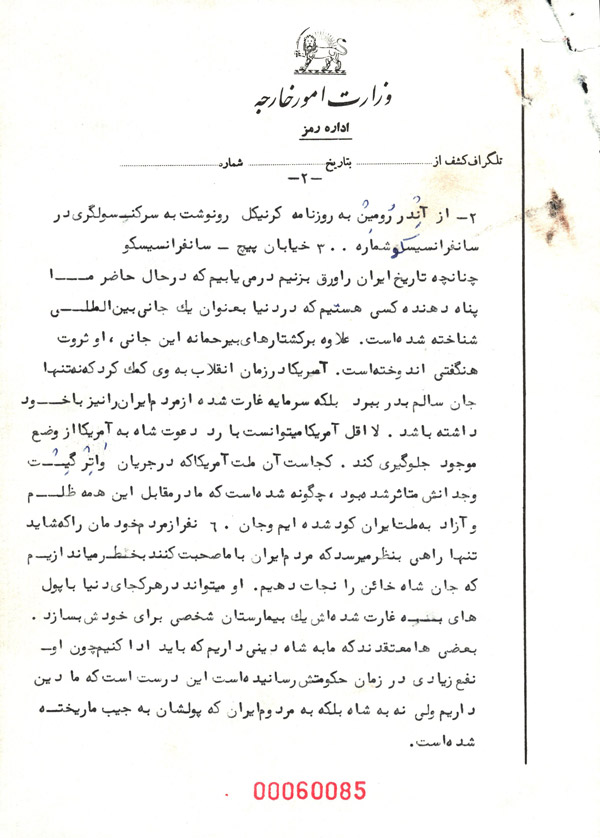 وزارت امور خارجه
اداره رمز
تلگراف کشف از ............ بتاریخ ............ شماره ............
-۲-
۲- از آندر رومین به روزنامه کرنیکل رونوشت به سرکنسولگری در
سانفرانسیسکو شماره ۳۰۰ خیابان پیچ - سانفرانسیسکو
چنانچه تاریخ ایران را ورق بزنیم درمی یابیم که درحال حاضر مـــا
پناه دهنده کسی هستیم که دردنیا بعنوان یك جانی بین المللـــی
شناخته شده است. علاوه برکشتارهای بیرحمانه این جانی ، او ثروت
هنگفتی اندوخته است. آمریکا درزمان انقلاب به وی کمك کرد که نه تنها
جان سالم بدر ببرد بلکه سرمایه غارت شده از مردم ایران را نیز با خـود
داشته باشد . لااقل آمریکا میتوانست با رد دعوت شاه به آمریکا از وضع
موجود جلوگیری کند . کجاست آن ملت آمریکا که درجریان واتر گیـت
وجدانش متاثر شده بود ، چگونه شده است که ما در مقابل این همه ظلـم
و آزاد به ملت ایران کور شده ایم و جان ٦٠ نفر از مردم خودمان را که شاید
تنها راهی بنظر میرسد که مردم ایران با ما صحبت کنند بخطـر میاندازیـم
که جان شاه خائن را نجات دهیم. او میتواند در هر کجای دنیا با پول
های بـــه غارت شده اش یك بیمارستان شخصی برای خودش بسازد .
بعضی ها معتقدند که ما به شاه دینی داریم که باید ادا کنیم چون او-
نفع زیادی در زمان حکومتش رسانیده است این درست است که ما دین
داریم ولی نه به شاه بلکه به مردوم ایران که پولشان به جیب ما ریختـه
شده است.
00060085